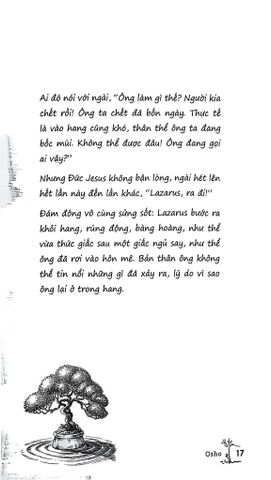 Ai đó nói với ngài, "Ông làm gì thế? Người kia
chết rồi! Ông ta chết đã bốn ngày. Thực tế
là vào hang cũng khó, thân thể ông ta đang
bốc mùi. Không thể được đâu! Ông đang gọi
ai vậy?"
Nhưng Đức Jesus không bận lòng, ngài hét lên
hết lần này đến lần khác, "Lazarus, ra đi!"
Đám đông vô cùng sửng sốt: Lazarus bước ra
khỏi hang, rúng động, bàng hoàng, như thể
vừa thức giấc sau một giấc ngủ say, như thể
ông đã rơi vào hôn mê. Bản thân ông không
thể tin nổi những gì đã xảy ra, lý do vì sao
ông lại ở trong hang.
Osho 17